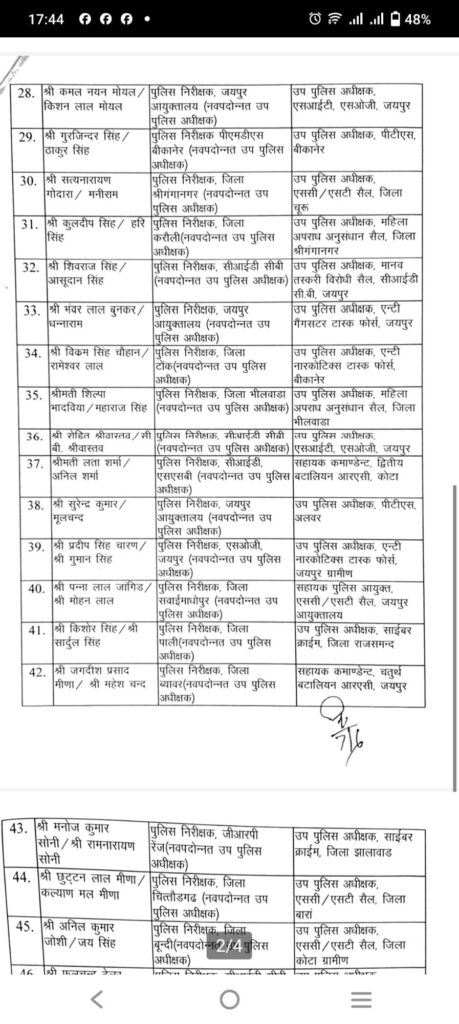 17:44
48%
28. श्री कमल नयन मोयल/ पुलिस निरीक्षक, जयपुर उप पुलिस अधीक्षक,
किशन लाल मोयल आयुक्तालय (नवपदोन्नत उप एसआईटी, एसओजी, जयपुर
पुलिस अधीक्षक)
29. श्री गुरजिन्दर सिंह/ पुलिस निरीक्षक पीएमडीएस उप पुलिस अधीक्षक, पीटीएस,
ठाकुर सिंह बीकानेर (नवपदोन्नत उप पुलिस बीकानेर
अधीक्षक)
30. श्री सत्यनारायण पुलिस निरीक्षक, जिला उप पुलिस अधीक्षक,
गोदारा / मनीराम श्रीगंगानगर (नवपदोन्नत उप एससी/एसटी सैल, जिला
पुलिस अधीक्षक) चूरू
31. श्री कुलदीप सिंह/ हरि पुलिस निरीक्षक, जिला उप पुलिस अधीक्षक, महिला
सिंह करौली(नवपदोन्नत उप पुलिस अपराध अनुसंधान सैल, जिला
अधीक्षक) श्रीगंगानगर
32. श्री शिवराज सिंह/ पुलिस निरीक्षक, सीआईडी सीबी उप पुलिस अधीक्षक, मानव
आसूदान सिंह (नवपदोन्नत उप पुलिस अधीक्षक) तस्करी विरोधी सैल, सीआईडी
सी.बी, जयपुर
33. श्री भंवर लाल बुनकर/ पुलिस निरीक्षक, जयपुर उप पुलिस अधीक्षक, एन्टी
धन्नाराम आयुक्तालय (नवपदोन्नत उप गैंगसटर टास्क फोर्स, जयपुर
पुलिस अधीक्षक)
34. श्री विकम सिंह चौहान/ पुलिस निरीक्षक, जिला उप पुलिस अधीक्षक, एन्टी
रामेश्वर लाल टोंक(नवपदोन्नत उप पुलिस नारकोटिक्स टास्क फोर्स,
अधीक्षक) बीकानेर
35. श्रीमती शिल्पा पुलिस निरीक्षक, जिला भीलवाडा उप पुलिस अधीक्षक, महिला
भादविया/महाराज सिंह (नवपदोन्नत उप पुलिस अधीक्षक) अपराध अनुसंधान सैल, जिला
भीलवाडा
36. श्री रोहित श्रीवास्तव/सी पुलिस निरीक्षक, सीआईडी सीबी उप पुलिस अधीक्षक,
बी. श्रीवास्तव (नवपदोन्नत उप पुलिस अधीक्षक) एसआईटी, एसओजी, जयपुर
37. श्रीमती लता शर्मा/ पुलिस निरीक्षक, सीआईडी, सहायक कमाण्डेन्ट, द्वितीय
अनिल शर्मा एसएसबी (नवपदोन्नत उप पुलिस बटालियन आरएसी, कोटा
अधीक्षक)
38. श्री सुरेन्द्र कुमार/ पुलिस निरीक्षक, जयपुर उप पुलिस अधीक्षक, पीटीएस,
मूलचन्द आयुक्तालय (नवपदोन्नत उप अलवर
पुलिस अधीक्षक)
39. श्री प्रदीप सिंह चारण/ पुलिस निरीक्षक, एसओजी, उप पुलिस अधीक्षक, एन्टी
श्री गुमान सिंह जयपुर (नवपदोन्नत उप पुलिस नारकोटिक्स टास्क फोर्स,
अधीक्षक) जयपुर ग्रामीण
40. श्री पन्ना लाल जांगिड/ पुलिस निरीक्षक, जिला सहायक पुलिस आयुक्त,
श्री मोहन लाल सवाईमाधोपुर (नवपदोन्नत उप एससी/एसटी सैल, जयपुर
पुलिस अधीक्षक) आयुक्तालय
41. श्री किशोर सिंह/श्री पुलिस निरीक्षक, जिला उप पुलिस अधीक्षक, साईबर
सार्दुल सिंह पाली(नवपदोन्नत उप पुलिस क्राईम, जिला राजसमन्द
अधीक्षक)
42. श्री जगदीश प्रसाद पुलिस निरीक्षक, जिला सहायक कमाण्डेन्ट, चतुर्थ
मीणा/ श्री महेश चन्द ब्यावर(नवपदोन्नत उप पुलिस बटालियन आरएसी, जयपुर
अधीक्षक)
7/6
43. श्री मनोज कुमार पुलिस निरीक्षक, जीआरपी उप पुलिस अधीक्षक, साईबर
सोनी/श्री रामनारायण रेंज(नवपदोन्नत उप पुलिस क्राईम, जिला झालावाड
सोनी अधीक्षक)
44. श्री छुट्टन लाल मीणा/ पुलिस निरीक्षक, जिला उप पुलिस अधीक्षक,
कल्याण मल मीणा चित्तौडगढ (नवपदोन्नत उप एससी/एसटी सैल, जिला
पुलिस अधीक्षक) बारां
45. श्री अनिल कुमार पुलिस निरीक्षक, जिला उप पुलिस अधीक्षक,
जोशी/जय सिंह बून्दी(नवपदोन्नत उप पुलिस एससी/एसटी सैल, जिला
अधीक्षक) कोटा ग्रामीण
2/4
46